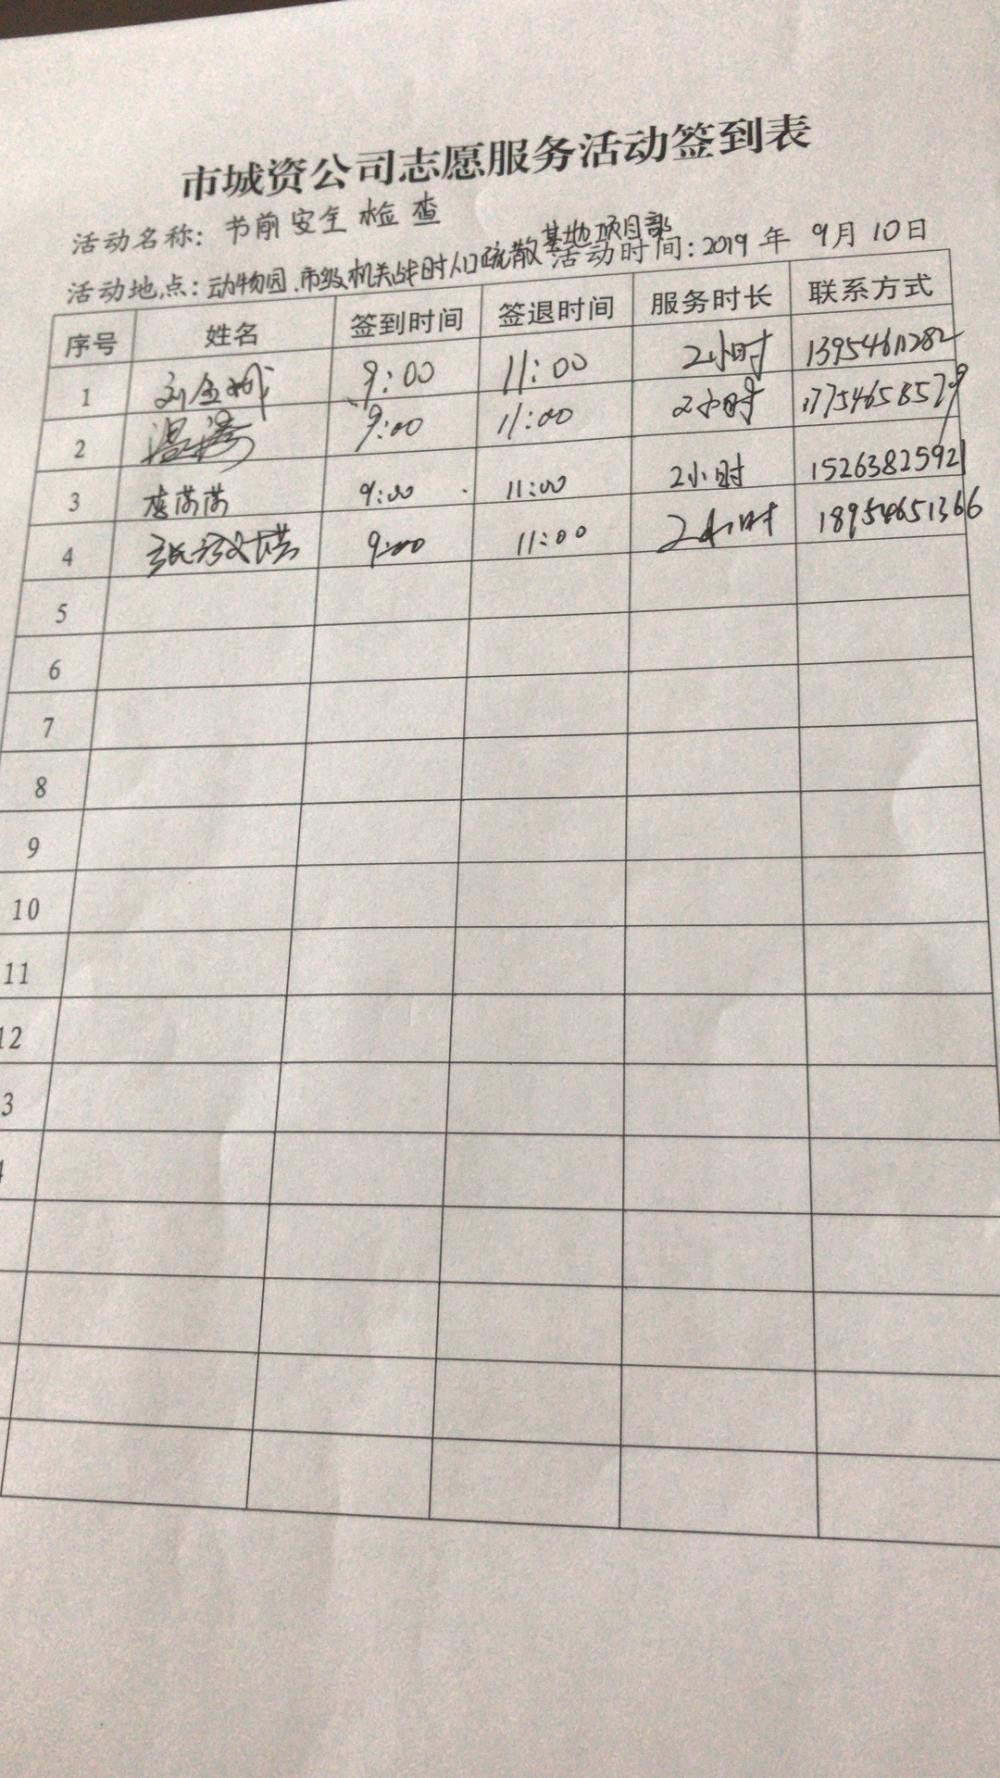 市城资公司志愿服务活动签到表
活动名称: 节前安全检查
活动地点: 动物园、市级机关战时人口疏散基地项目部 活动时间: 2019年 9月10日
序号 姓名 签到时间 签退时间 服务时长 联系方式
1 9:00 11:00 2小时 13954611282
2 9:00 11:00 2小时 17754658579
3 李茜茜 9:00 11:00 2小时 15263825921
4 9:00 11:00 2小时 18954651366
5
6
7
8
9
10
11
12
3